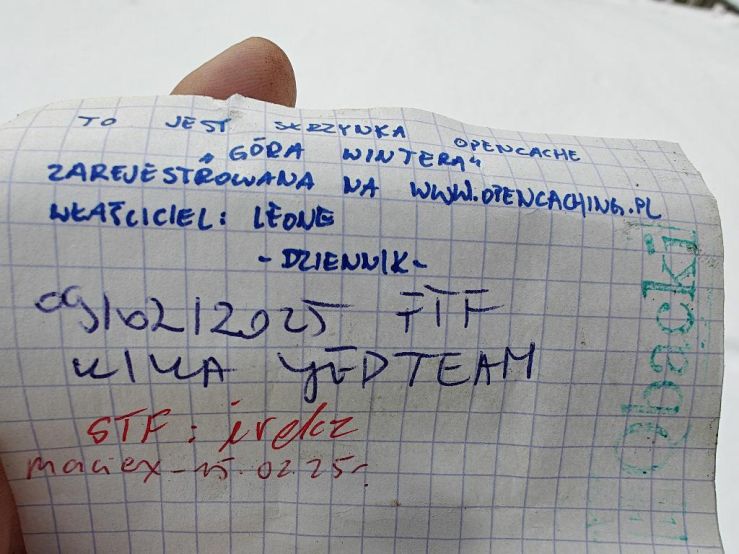 TO JEST SKRZYNKA OPENCACHE
„GÓRA WINTERA"
ZAREJESTROWANA NA WWW.OPENCACHING.PL
WŁAŚCICIEL: LEONE
- DZIENNIK -
09/02/2025 FTF
KIKA YEDTEAM
STF: irekz
maciex - 15.02.25r